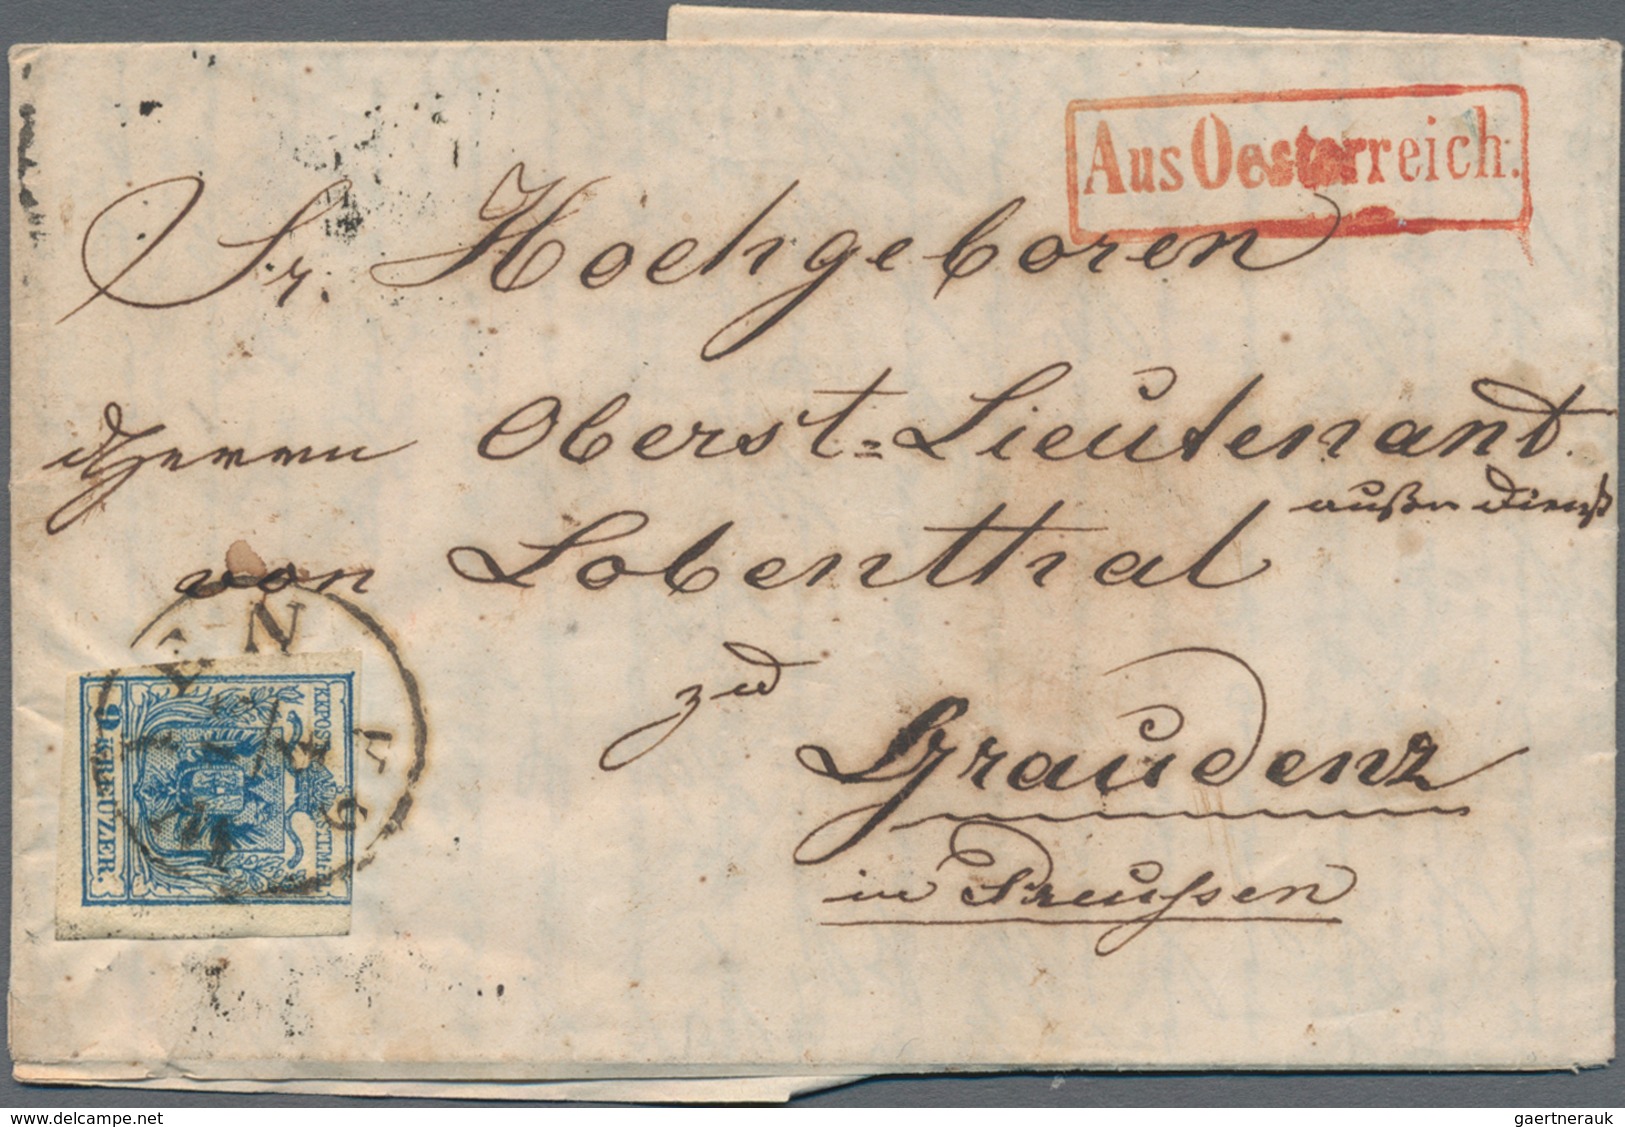 Aus Oesterreich.
Sr. Hochgeboren
Herrn Oberst=Lieutenant
außer Dienst
von Lobenthal
zu
Graudenz
in Preußen
WIEN
9 KREUZER.
gaertnerauk
www.delcampe.net